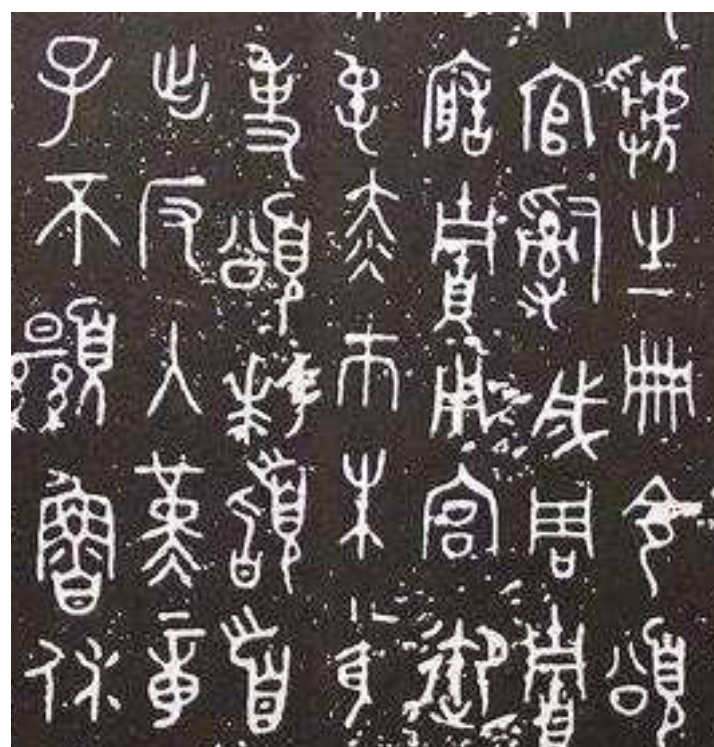 虢生冊令頌
官𤔲成周賈
造賈用宮御
屯赤巿朱黃
事頌拜𩒨首
出反入堇章
子不顯魯休